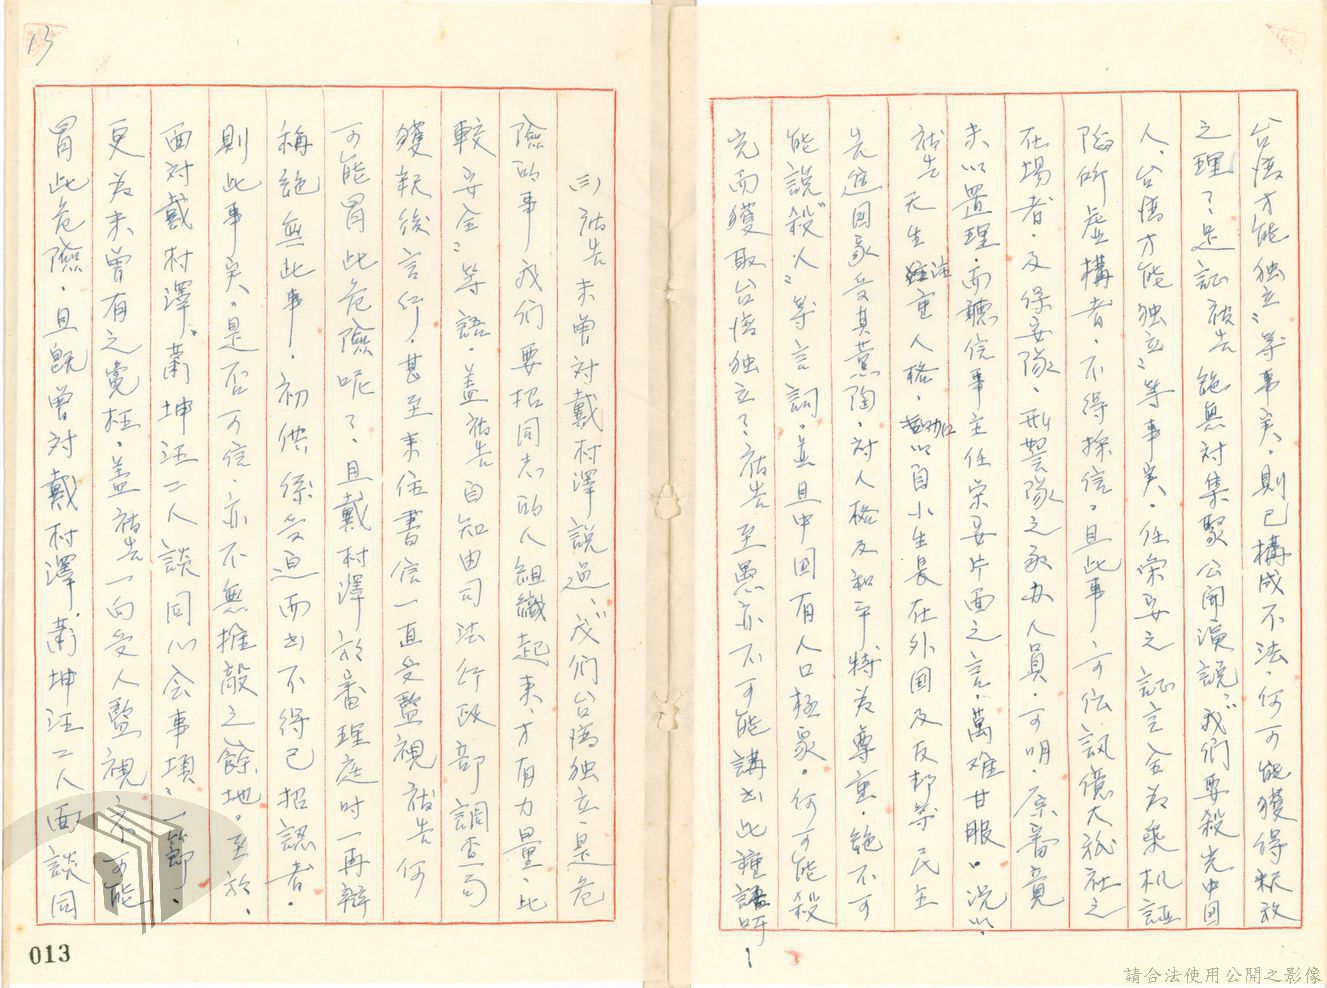 台湾才能独立」等事実，則已構成不法，何可能獲得釈放
之理？是証被告絶無対集聚公開演説「我们要殺光中囯
人、台湾才能独立」等事実，任栄安之証言全為乗机誣
陥所虚構者，不得採信。且此事可伝訊億大紙社之
在場者，及保安隊、刑警隊之承办人員，可明，原審竟
未以置理，而聴信事主任栄安片面之言，萬难甘服。況以，
被告天生注重人格，以自小生長在外囯及友邦等民主
先進囯家受其薫陶，対人格及和平特為尊重，絶不可
能說「殺人」等言詞，並且中囯有人口極衆，何可能殺
完而獲取台湾独立？被告至愚亦不可能講出此種話呀！
(三)被告未曽対戴村澤說过，「我们台湾独立，是危
險的事我们要招同志的人組織起来，才有力量，比
較安全」等語，盖被告自知由司法行政部調查局
獲釈後言行，甚至来往書信一直受監視被告何
可能冒此危險呢？且戴村澤於審理庭时一再辯
稱絶無此事，初供係受迫而出不得已招認者，
則此事実。是否可信，亦不無推敲之餘地。至於，
面対戴村澤、蕭坤汪二人談同心会事項，一節，
更為未曽有之寃枉，盖被告一向受人監視不可能
冒此危險，且既曽対戴村澤、蕭坤汪二人面談同
013
請合法使用公開之影像